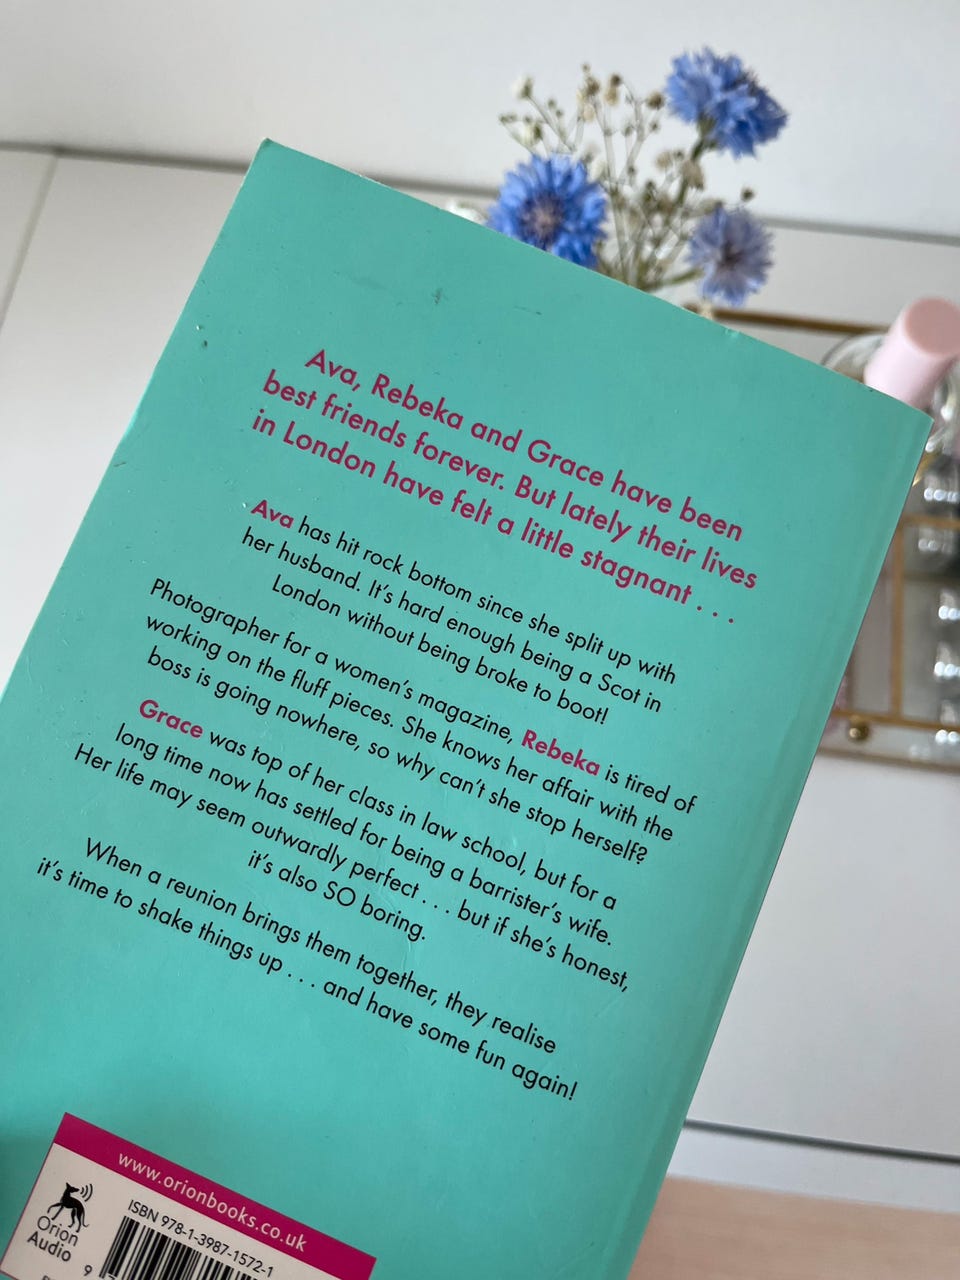 Ava, Rebeka and Grace have been
best friends forever. But lately their lives
in London have felt a little stagnant . . .
Ava has hit rock bottom since she split up with
her husband. It's hard enough being a Scot in
London without being broke to boot!
Photographer for a women's magazine, Rebeka is tired of
working on the fluff pieces. She knows her affair with the
boss is going nowhere, so why can't she stop herself?
Grace was top of her class in law school, but for a
long time now has settled for being a barrister's wife.
Her life may seem outwardly perfect . . . but if she's honest,
it's also SO boring.
When a reunion brings them together, they realise
it's time to shake things up . . . and have some fun again!
www.orionbooks.co.uk
Orion
Audio
ISBN 978-1-3987-1572-1
9